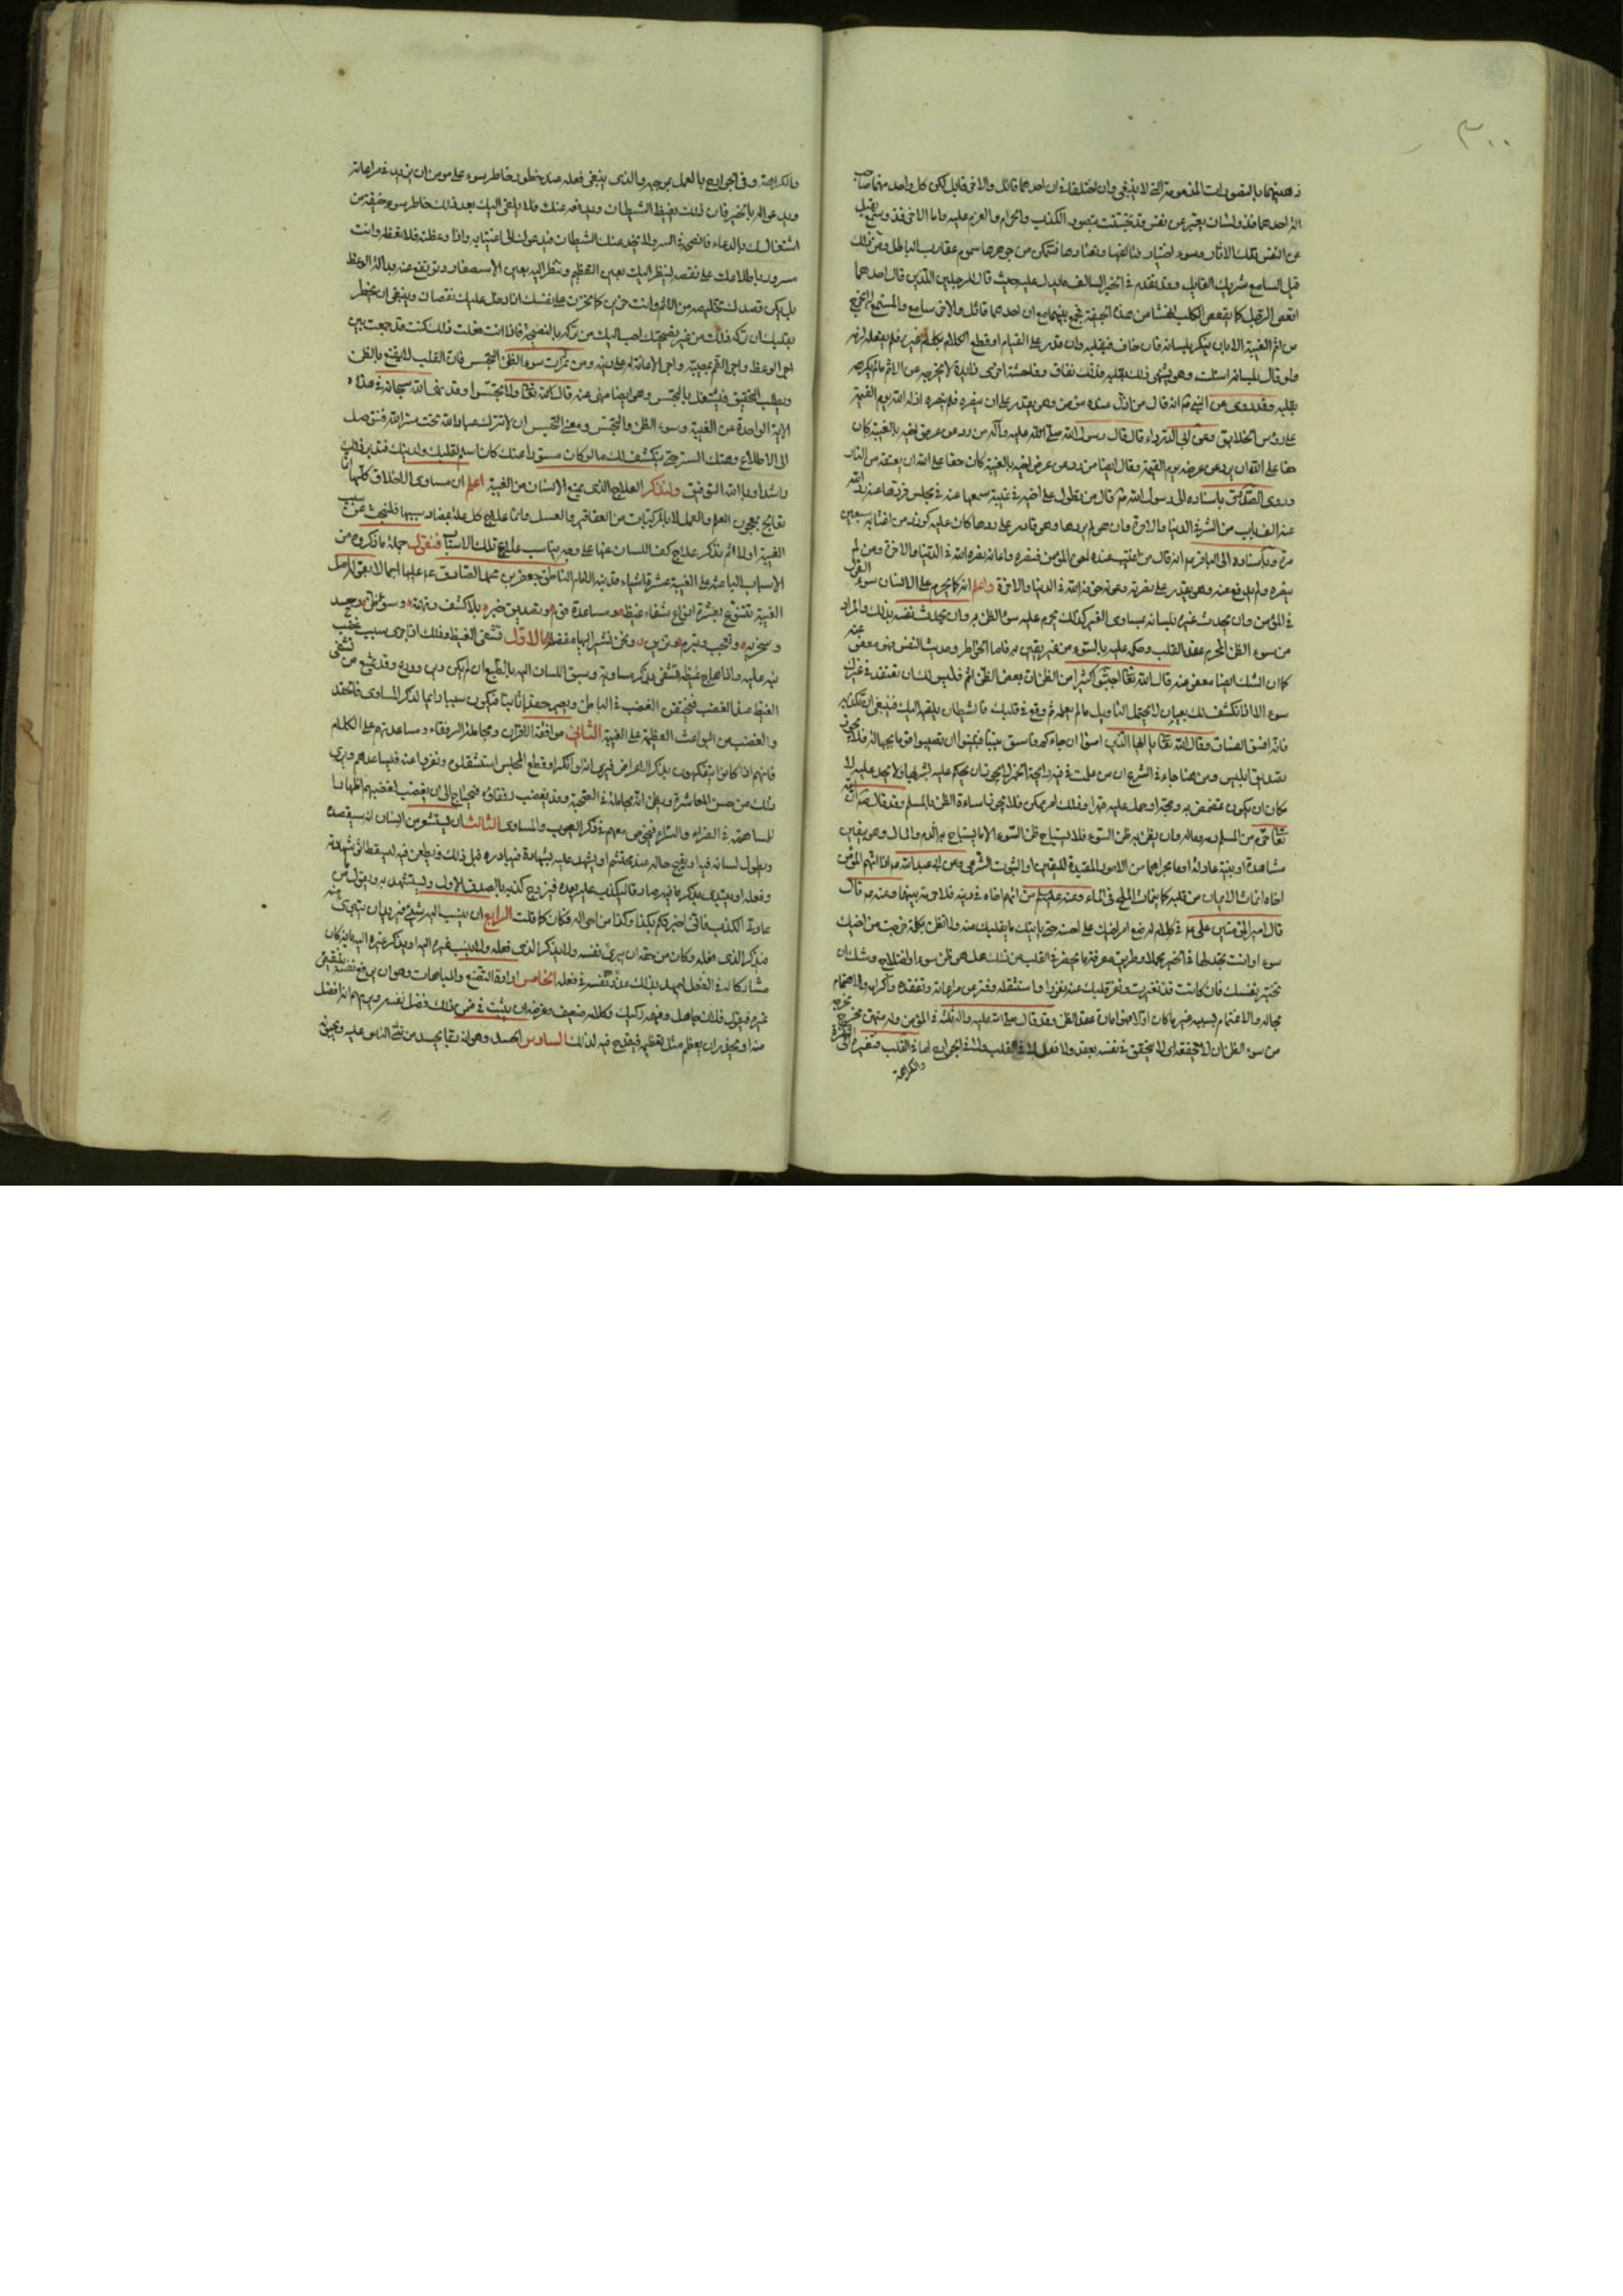 ٣٠٠
ذهنيهما بالتصورات المذمومة التي لا ينبغي وان اختلفا في ان احدهما قائل والاخر قابل لكن كل واحد منهما صاحب
الة احدهما ذو لسان يعبر عن نفس قد تنجست بتصور الكذب والحرام والعزم عليه واما الاخر فذو سمع يقبل
عن النفس تلك الاثار وسوء اختيار فتالفها وتعتادها فتتمكن من جوهرها سموم عقارب الباطل ومن ذلك
قيل السامع شريك القائل وقد تقدم في الخبر السالف ما يدل عليه حيث قال للرجلين اللذين قال احدهما
اقعص الرجل كما يقعص الكلب انهشا من هذه الجيفة فجمع بينهما مع ان احدهما قائل والاخر سامع والمستمع لا يخرج
من اثم الغيبة الا بان ينكر بلسانه فان خاف فبقلبه وان قدر على القيام او قطع الكلام بكلام غيره فلم يفعله لزمه
ولو قال بلسانه اسكت وهو يشتهي ذلك بقلبه فذلك نفاق وفاحشة اخرى زايدة لا يخرجه عن الاثم ما لم يكرهه
بقلبه وقد روى عن النبي ص انه قال من اذل عنده مؤمن وهو يقدر على ان ينصره فلم ينصره اذله الله يوم القيمة
على رؤس الخلايق وعن ابي الدرداء قال قال رسول الله صلى الله عليه وآله من رد عن عرض اخيه بالغيبة كان
حقا على الله ان يرد عن عرضه يوم القيمة وقال ايضا من رد عن عرض اخيه بالغيبة كان حقا على الله ان يعتقه من النار
وروى الصدوق باسناده الى رسول الله ص قال من تطول على اخيه في غيبة سمعها عنه في مجلس فردها عنه رد الله
عنه الف باب من الشر في الدنيا والاخرة وان هو لم يردها وهو قادر على ردها كان عليه كوزر من اغتابه سبعين
مرة وباسناده الى الباقر ع انه قال من اغتيب عنده اخوه المؤمن فنصره واعانه نصره الله في الدنيا والاخرة ومن لم
ينصره ولم يدفع عنه وهو يقدر على نصرته وعونه خذله الله في الدنيا والاخرة واعلم انه كما يحرم على الانسان سوء القول
في المؤمن وان يحدث غيره بلسانه بمساوى الغير كذلك يحرم عليه سوء الظن به وان يحدث نفسه بذلك والمراد
من سوء الظن المحرم عقد القلب وحكمه عليه بالسوء من غير يقين به فاما الخواطر وحديث النفس فهو معفو عنه
كما ان الشك ايضا معفو عنه قال الله تعالى اجتنبوا كثيرا من الظن ان بعض الظن اثم فليس لك ان تعتقد في غيرك
سوء الا اذا انكشف لك بعيان لا يحتمل التأويل وما لم تعلمه ثم وقع في قلبك فالشيطان يلقيه اليك فينبغي ان تكذبه
فانه افسق الفساق وقال الله تعالى يا ايها الذين امنوا ان جاءكم فاسق بنبأ فتبينوا ان تصيبوا قوما بجهالة فلا يجوز
تصديق ابليس ومن هنا جاء في الشرع ان من علمت في فيه رايحة الخمر لا يجوز ان يحكم عليه بشربها ولا يحد عليه لا
مكان ان يكون تمضمض به ومجه او حمل عليه قهرا وذلك امر ممكن فلا يجوز اساءة الظن بالمسلم وقد قال ص ان الله
تعالى حرم من المسلم دمه وماله وان يظن به ظن السوء فلا يستباح ظن السوء الا بما يستباح به الدم والمال وهو بيقين
مشاهدة او بينة عادلة او ما يجراهما من الامور المفيدة لليقين او الثبوت الشرعي وعن ابي عبد الله ع اذا اتهم المؤمن
اخاه انماث الايمان من قلبه كما ينماث الملح في الماء وعنه عليه السلم من اتهم اخاه في دينه فلا حرمة بينهما وعنه ع قال
قال امير المؤمنين علي ع في كلام له ضع امر اخيك على احسنه حتى يأتيك ما يقلبك منه ولا تظن بكلمة خرجت من اخيك
سوء وانت تجد لها في الخير محملا وطريق معرفة ما يخطر في القلب من ذلك هل هو ظن سوء او اختلاج وشك ان
تختبر نفسك فان كانت قد تغيرت ونفر قلبك عنه نفورا واستثقله وفتر عن مراعاته وتفقده واكرامه والاهتمام
بحاله والاغتمام بسببه غير ما كان اولا فهو امارة عقد الظن وقد قال صلى الله عليه واله ثلث في المؤمن وله منهن مخرج فمخرجه
من سوء الظن ان لا يحققه اي لا يحقق في نفسه بعقد ولا فعل لا في القلب ولا في الجوارح اما في القلب فبتغيره الى النفرة
والكراهة
والكراهة وفي الجوارح بالعمل بموجبه والذي ينبغي فعله عند خطور خاطر سوء على مؤمن ان يزيد في مراعاته
ويدعو له بالخير فان ذلك يغيظ الشيطان ويدفعه عنك فلا يلقى اليك بعد ذلك خاطر سوء خيفة من
اشتغالك بالدعاء فانصحه في السر ولا يخدعنك الشيطان فيدعوك الى اغتيابه واذا وعظته فلا تعظه وانت
مسرور باطلاعك على نقصه لينظر اليك بعين التعظيم وتنظر اليه بعين الاستصغار وترتفع عنه بدالة الوعظ
بل يكن قصدك تخليصه من الاثم وانت حزين كما تحزن على نفسك اذا دخل عليك نقصان وينبغي ان يخطر
بقلبك ان تركه ذلك من غير نصيحتك احب اليك من تركه بالنصيحة فاذا انت فعلت ذلك كنت قد جمعت بين
اجر الوعظ واجر الغم بمصيبته واجر الاعانة له على دينه ومن ثمرات سوء الظن التجسس فان القلب لا يقنع بالظن
ويطلب التحقيق فليشتغل بالتجسس وهو ايضا منهى عنه قال الله تعالى ولا تجسسوا وقد نهى الله سبحانه في هذه
الاية الواحدة عن الغيبة وسوء الظن والتجسس ومعنى التجسس ان لا تترك عباد الله تحت ستر الله فتتوصل
الى الاطلاع وهتك الستر حتى ينكشف لك ما لو كان مستورا عنك كان اسلم لقلبك ولدينك فتدبر ذلك
راشدا وبالله التوفيق ولنذكر العلاج الذي يمنع الانسان من الغيبة اعلم ان مساوى الاخلاق كلها انما
تعالج بمعجون العلم والعمل لا بالمركبات من العقاقير والعسل وانما علاج كل علة بمضاد سببها فلنبحث عن سبب
الغيبة اولا ثم نذكر علاج كف اللسان عنها على وجه يناسب علاج تلك الاسباب فنقول جملة ما ذكروه من
الاسباب الباعثة على الغيبة عشرة اشياء قد نبه الامام الناطق جعفر بن محمد الصادق ع عليها اجمالا بقوله اصل
الغيبة تتنوع بعشرة انواع شفاء غيظ ومساعدة قوم وتصديق خبر بلا كشف وتهمة وسوء ظن وحسد
وسخرية وتعجب وتبرم وتزين ونحن نشير اليها مفصلا الاول تشفى الغيظ وذلك اذا جرى سبب غضب
فيه عليه فاذا هاج غيظه تشفى بذكر مساويه وسبق اللسان اليه بالطبع ان لم يكن دين ورع وقد يمتنع من تشفى
الغيظ عند الغضب فيحتقن الغضب في الباطن ويصير حقدا ثابتا فيكون سببا دائما لذكر المساوى فالحقد
والغضب من البواعث العظيمة على الغيبة الثاني موافقة الاقران ومجاملة الرفقاء ومساعدتهم على الكلام
فانهم اذا كانوا يتفكهون بذكر الاعراض فيرى انه لو انكر او قطع المجلس استثقلوه ونفروا عنه فيساعدهم ويرى
ذلك من حسن المعاشرة ويظن انه مجاملة في الصحبة وقد يغضب رفقاؤه فيحتاج الى ان يغضب لغضبهم اظهارا
للمساهمة في الضراء والسراء فيخوض معهم في ذكر العيوب والمساوى الثالث ان يستشعر من انسان انه سيقصده
ويطول لسانه فيه او يقبح حاله عند محتشم او يشهد عليه بشهادة فيبادره قبل ذلك ويطعن فيه ليسقط اثر شهادته
وفعله او يبتدى بذكر ما فيه صادقا ليكذب عليه بعده فيروج كذبه بالصدق الاول ويستشهد به ويقول ما من
عادتي الكذب فاني اخبرتكم بكذا وكذا من احواله فكان كما قلت الرابع ان ينسب اليه شيء فيريد ان يتبرى منه
فيذكر الذي فعله وكان من حقه ان يبرئ نفسه ولا يذكر الذي فعله ولا ينسب غيره اليه او يذكر غيره بانه كان
مشاركا له في الفعل ليمهد بذلك عذر نفسه في فعله الخامس ارادة التصنع والمباهات وهو ان يرفع نفسه بتنقيص
غيره فيقول فلان جاهل وفهمه ركيك وكلامه ضعيف وغرضه ان يثبت في ضمن ذلك فضل نفسه ويريهم انه افضل
منه او يحذر ان يعظم مثل تعظيمه فيقدح فيه لذلك السادس الحسد وهو انه ربما يحسد من يثنى الناس عليه ويحبونه